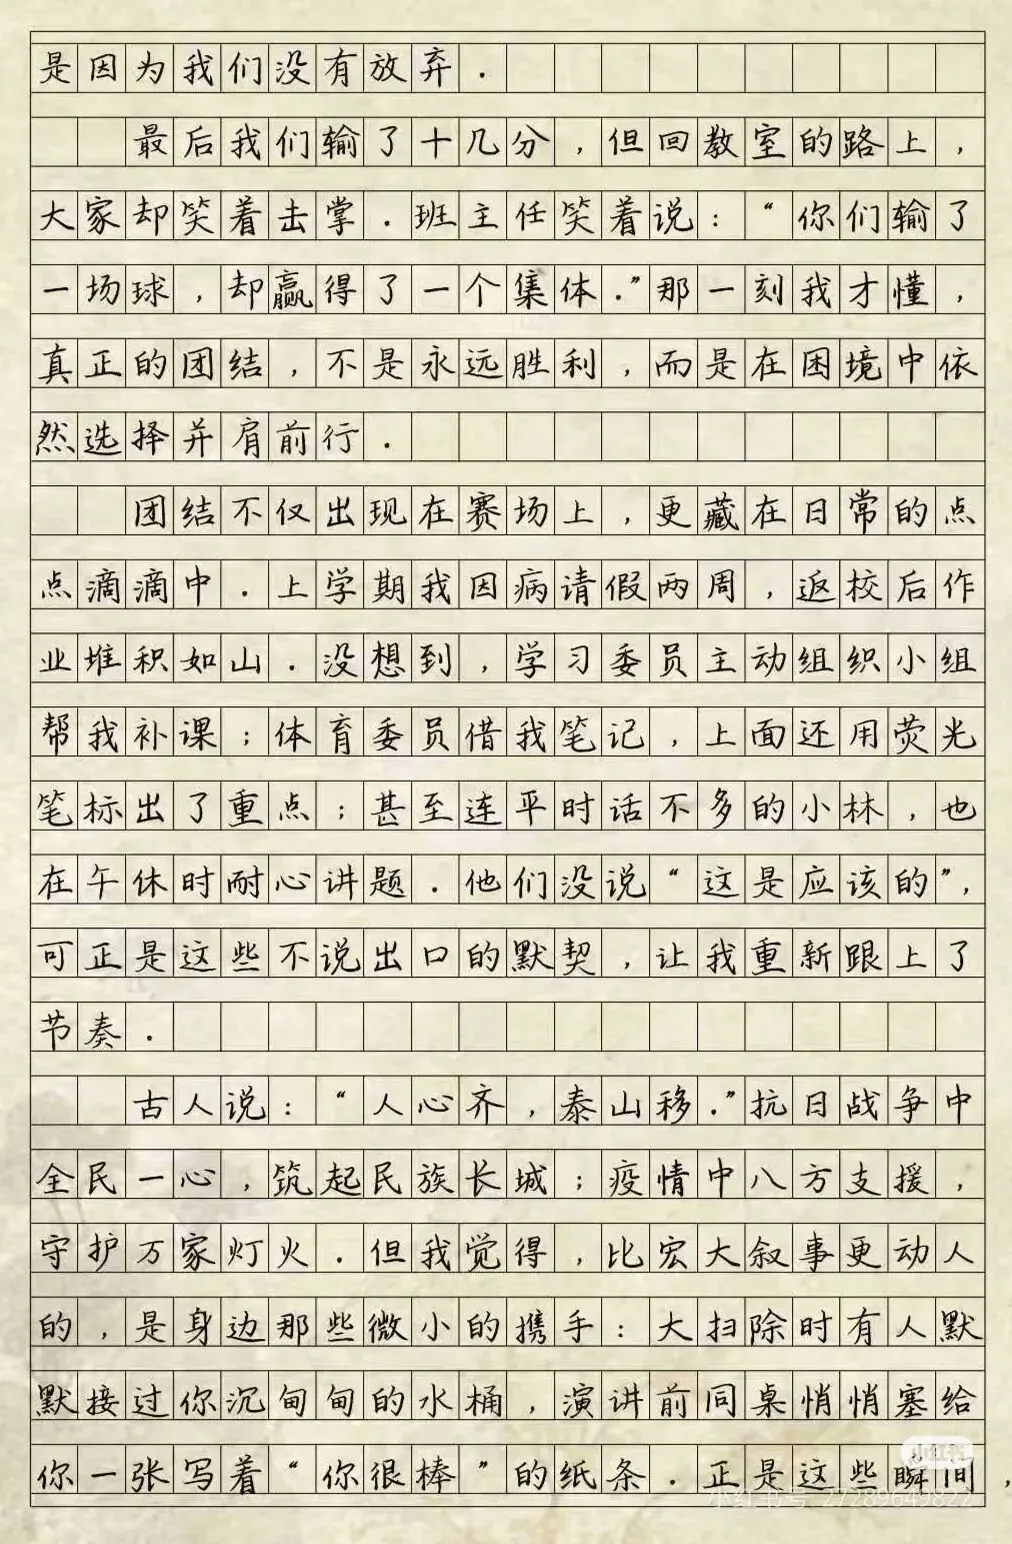 是因为我们没有放弃．
最后我们输了十几分，但回教室的路上，
大家却笑着击掌．班主任笑着说：“你们输了
一场球，却赢得了一个集体．”那一刻我才懂，
真正的团结，不是永远胜利，而是在困境中依
然选择并肩前行．
团结不仅出现在赛场上，更藏在日常的点
点滴滴中．上学期我因病请假两周，返校后作
业堆积如山．没想到，学习委员主动组织小组
帮我补课；体育委员借我笔记，上面还用荧光
笔标出了重点；甚至连平时话不多的小林，也
在午休时耐心讲题．他们没说“这是应该的”，
可正是这些不说出口的默契，让我重新跟上了
节奏．
古人说：“人心齐，泰山移．”抗日战争中
全民一心，筑起民族长城；疫情中八方支援，
守护万家灯火．但我觉得，比宏大叙事更动人
的，是身边那些微小的携手：大扫除时有人默
默接过你沉甸甸的水桶，演讲前同桌悄悄塞给
你一张写着“你很棒”的纸条．正是这些瞬间，
小红书
小红书号 27289649822